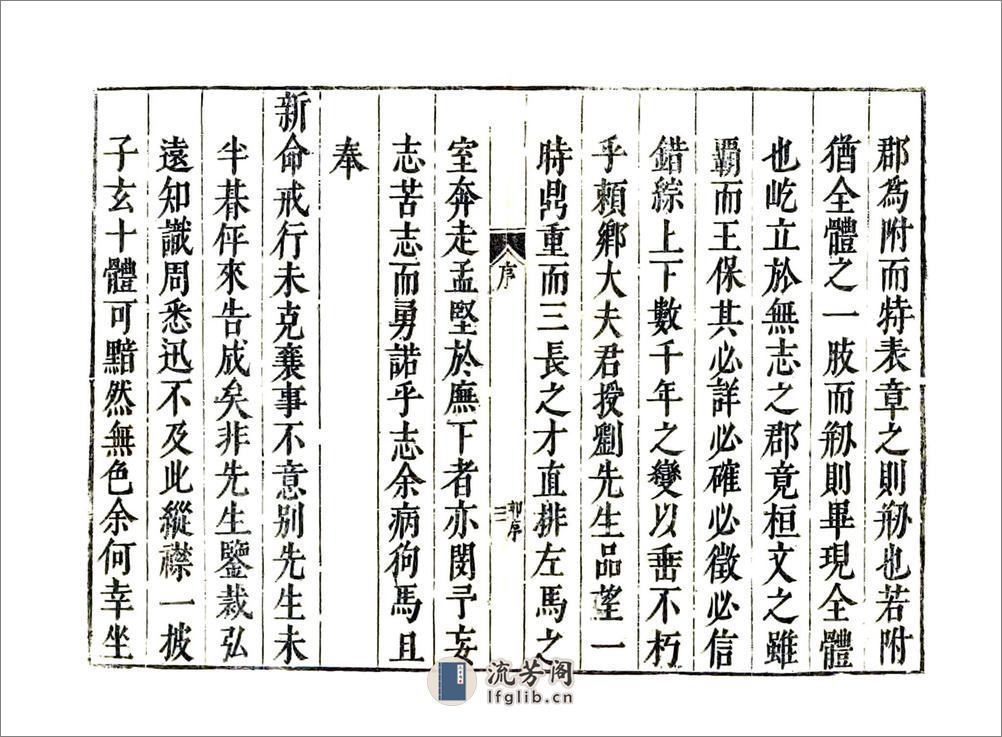 郡爲附而特表章之則剏也若附
猶全體之一肢而剏則畢現全體
也屹立於無志之郡竟桓文之雖
覇而王保其必詳必確必徵必信
錯綜上下數千年之變以垂不朽
乎頼鄉大夫君授劉先生品望一
時鼎重而三長之才直排左馬之
序
郭序
三
室奔走孟堅於廡下者亦閔予妄
志苦志而勇諾乎志余病狗馬且
奉
新命戒行未克襄事不意別先生未
半朞伻來告成矣非先生鑒裁弘
遠知識周悉迅不及此縱襟一披
子玄十體可黯然無色余何幸坐
流芳阁
lfglib.cn